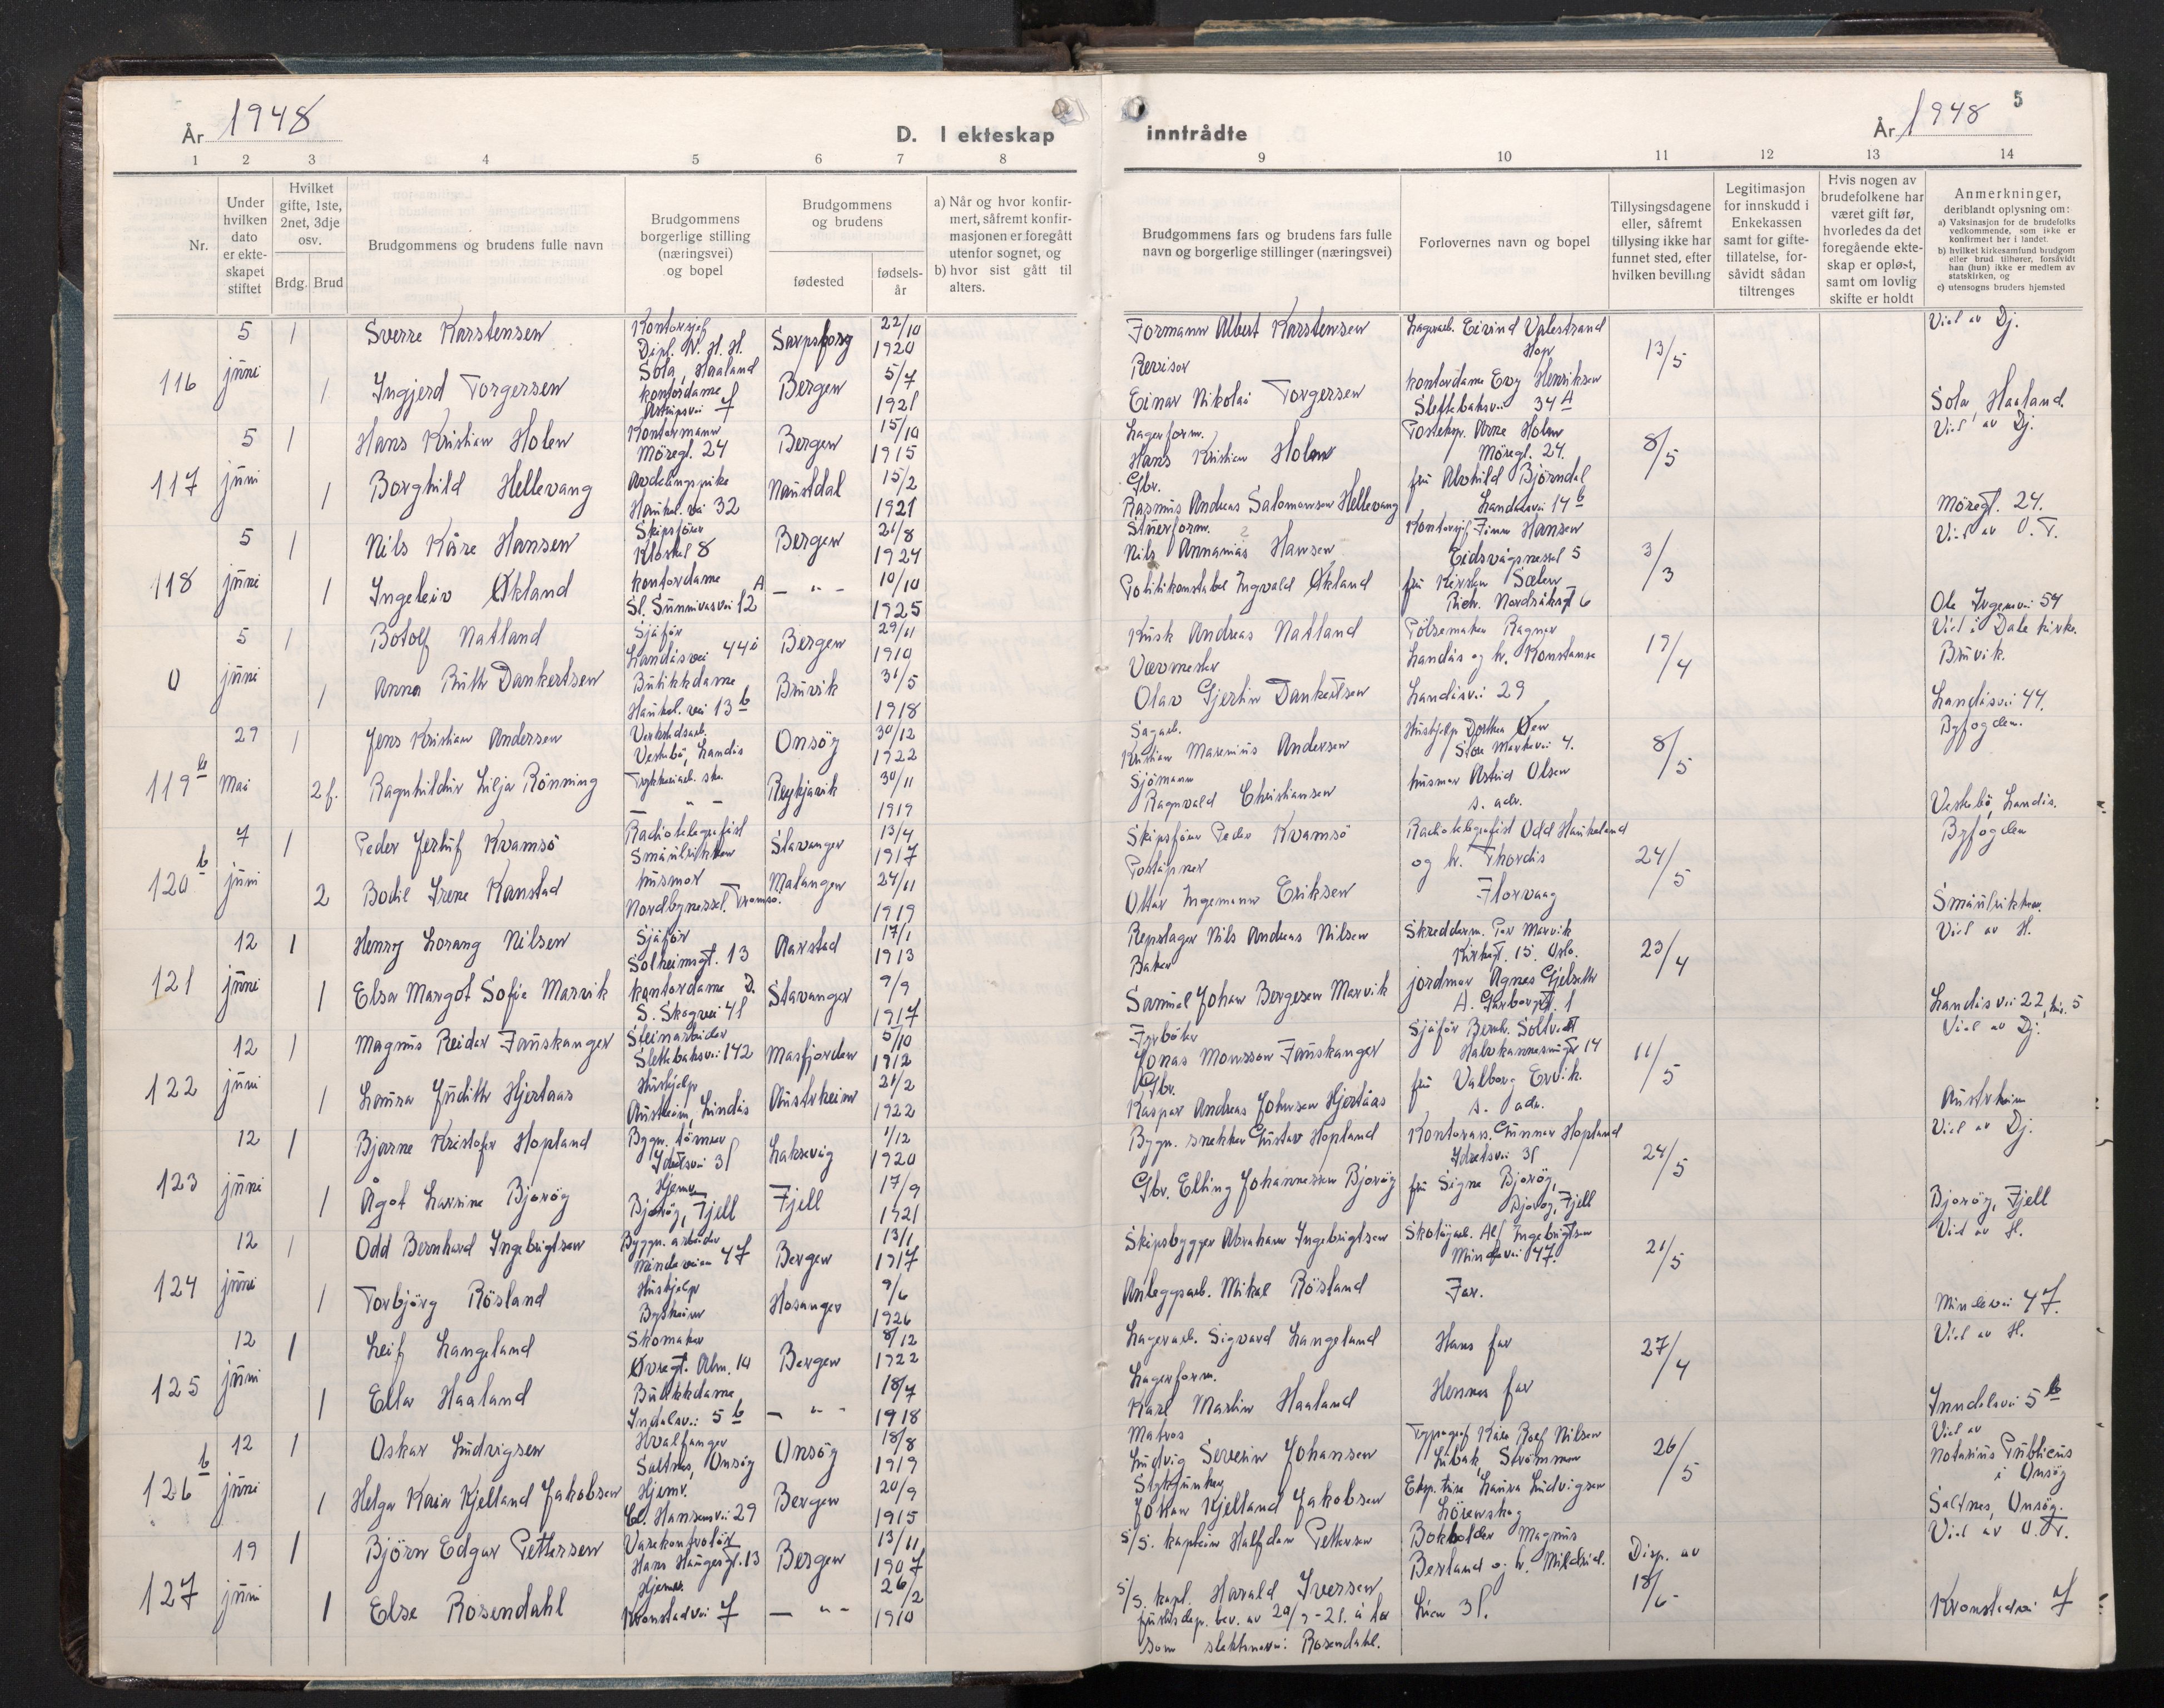 År 1948
D. I ekteskap
1 2 3 4 5 6 7 8
Nr.
Under hvilken dato er ekteskapet stiftet
Hvilket gifte, 1ste, 2net, 3dje osv.
Brdg. Brud
Brudgommens og brudens fulle navn
Brudgommens borgerlige stilling (næringsvei) og bopel
Brudgommens og brudens
fødested
fødselsår
a) Når og hvor konfirmert, såfremt konfirmasjonen er foregått utenfor sognet, og
b) hvor sist gått til alters.
inntrådte
År 1948
5
9 10 11 12 13 14
Brudgommens fars og brudens fars fulle navn og borgerlige stillinger (næringsvei)
Forlovernes navn og bopel
Tillysingsdagene eller, såfremt tillysing ikke har funnet sted, efter hvilken bevilling
Legitimasjon for innskudd i Enkekassen samt for giftetillatelse, forsåvidt sådan tiltrenges
Hvis nogen av brudefolkene har været gift før, hvorledes da det foregående ekteskap er opløst, samt om lovlig skifte er holdt
Anmerkninger,
deriblandt oplysning om:
a) Vaksinasjon for de brudefolks vedkommende, som ikke er konfirmert her i landet.
b) hvilket kirkesamfund brudgom eller brud tilhører, forsåvidt han (hun) ikke er medlem av statskirken, og
c) utensogns bruders hjemsted
116 5 juni 1 Sverre Karstensen Kontorsjef Dipl. N. H. H. Sola, Haaland Sarpsborg 22/10 1920 Formann Albert Karstensen Lagerarb. Eivind Valestrand Hop 13/5 Viet av Dj.
1 Ingjerd Torgersen kontordame 7 Bergen 5/7 1921 Revisor Einar Nikolai Torgersen kontordame Evy Henriksen Slettebaksvei 34 A Sola, Haaland.
117 5 juni 1 Hans Kristian Holen Kontormann Möregt. 24 Bergen 15/10 1915 Lagerform. Hans Kristian Holen Posteksp. Arne Holen Möregt. 24. 8/5 Viet av Dj.
1 Borghild Hellevang Avdelingspike Haukel. vei 32 Naustdal 15/2 1921 Gbr. Rasmus Andreas Salomonsen Hellevang fru Alvhild Björndal Landåsvei 14 b Möregt. 24.
118 5 juni 1 Nils Kåre Hansen Skipsförer 8 Bergen 21/8 1924 Stuerform. Nils Annanias Hansen Kontorsjef Finn Hansen Eidsvågnesset 5 3/3 Viet av O. T.
1 Ingeleiv Økland kontordame St. Sunnivasvei 12 A — " — 10/10 1925 Politikonstabel Ingvald Økland fru Kirsten Sælen Rich. Nordråksgt 6 Ole Irgensvei 54
0 5 juni 1 Botolf Natland Sjåför Landåsvei 44 Bergen 29/11 1910 Kusk Andreas Natland Pölsemaker Ragnar Landås og h. Konstanse 19/4 Viet i Dale kirke. Bruvik.
1 Anna Ruth Dankertsen Butikkdame Haukel. vei 13 b Bruvik 31/5 1918 Vevmester Olav Gjertin Dankertsen Landåsvei 29 Landåsvei 44.
119 b 29 Mai 1 Jens Kristian Andersen Verkstedsarb. Vestebö, Landås Onsöy 30/12 1922 Sagarb. Kristian Marenius Andersen Hushjelp Dorthea Øen Store Markevei 4. 8/5 Byfogden.
2 f. Ragnhildur Lilja Rönning — " — Reykjavik 30/11 1919 Sjömann Ragnvald Christiansen husmor Astrid Olsen s. adr. Vestebö, Landås.
120 b 7 juni 1 Peder Jertuf Kvamsö Radiotelegrafist Småulrikken Stavanger 13/4 1917 Skipsförer Peder Kvamsö Radiotelegrafist Odd Haukeland og h. Thordis Florvaag 24/5 Byfogden
2 Bodil Irene Kanstad husmor Nordbynesset. Tromsö. Malangen 24/11 1919 Poståpner Ottar Ingemann Eriksen Småulrikken.
121 12 juni 1 Henry Lorang Nilsen Sjåför Solheimsgt. 13 Aarstad 17/1 1913 Repslager Nils Andreas Nilsen Skredderm. Per Marvik Kirkegt. 15. Oslo. 23/4 Viet av H.
1 Elsa Margot Sofie Marvik kontordame D. S. Skagevei 41 Stavanger 9/9 1917 Baker Samuel Johan Bergesen Marvik jordmor Agnes Gjelseth A. Garborgsgt. 1 Landåsvei 22, hus. 5
122 12 juni 1 Magnus Reidar Fauskanger Steinarbeider Slettebaksvei 142 Masfjorden 5/10 1912 Fyrböter Jonas Monsson Fauskanger Sjåför Bernh. Soltvedt 14 11/5 Viet av Dj.
1 Laura Judith Hjertaas Hushjelp Austrheim, Lindås Austrheim 21/2 1922 Gbr. Kaspar Andreas Johnsen Hjertaas fru Valborg Ervik. s. adr. Austrheim
123 12 juni 1 Bjarne Kristofer Hopland Bygn. tömrer Idrettsvei 31 Laksevåg 1/12 1920 Bygn. snekker Gustav Hopland Kontorass. Gunnar Hopland Idrettsvei 31 24/5 Viet av Dj.
1 Ågot Larsine Bjoröy Hjemv. Bjoröy, Fjell Fjell 17/9 1921 Gbr. Elling Johannessen Bjoröy fru Signe Bjoröy, Bjoröy, Fjell Bjoröy, Fjell
124 12 juni 1 Odd Bernhard Ingebrigtsen Byggn. arbeider Mindeveien 47 Bergen 13/1 1917 Skipsbygger Abraham Ingebrigtsen Skotöyarb. Alf Ingebrigtsen Mindevei 47. 21/5 Viet av H.
1 Torbjörg Rösland Hushjelp Hosanger 9/6 1926 Anleggsarb. Mikal Rösland Far. Mindevei 47.
125 12 juni 1 Leif Langeland Skomaker Øvregt. Alm. 10 Bergen 8/12 1922 Lagerarb. Sigvard Langeland Hans far 27/4 Viet av H.
1 Ella Haaland Butikkdame Inndalsv. 5 b — " — 18/7 1918 Lagerform. Karl Martin Haaland Hennes far Inndalsvei 5 b
126 b 12 juni 1 Oskar Ludvigsen Hvalfanger Saltnes, Onsöy Onsöy 18/8 1919 Matros Ludvig Severin Johansen Typograf Kåre Rolf Nilsen Strömmen 26/5 Viet av Notarius Publicus i Onsöy
1 Helga Karin Kjelland Jakobsen Hjemv. Cl. Hansensvei 29 Bergen 20/9 1915 Johan Kjelland Jakobsen Eksp. trise Laura Ludvigsen Lörenskog Saltnes, Onsöy.
127 19 juni 1 Björn Edgar Pettersen Varekontrolör Hans Haugesgt. 13 Bergen 13/11 1907 s/s. kaptein Halfdan Pettersen Bokholder Magnus Berland og h. Mildrid. Disp. av 18/6- Viet av O. T.
1 Else Rosendahl Hjemv. Kronstadvei 7 — " — 26/2 1910 s/s. kapt. Harald Iversen justisdep. bev. av 20/9-21. å ha som slektsnavn: Rosendahl. Lien 31. Kronstadvei 7